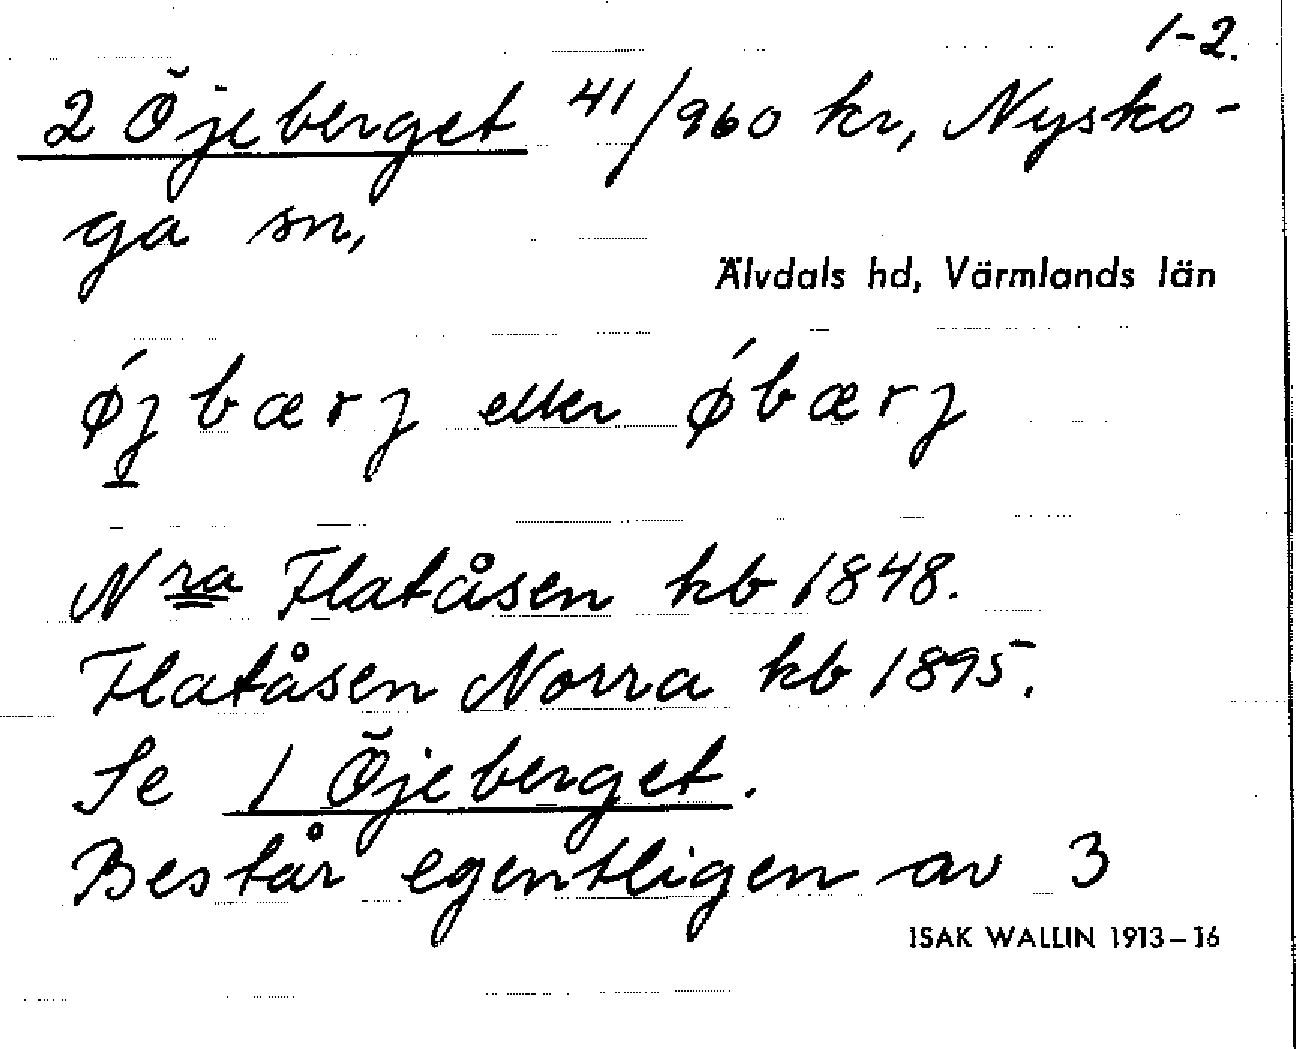 1-2.
2 Öjeberget 41/960 kr, Nysko-
ga sn,
Älvdals hd, Värmlands län
ǿjbærj eller ǿbærj
Nra Flatåsen kb 1848.
Flatåsen Norra kb 1895.
Se 1 Öjeberget.
Består egentligen av 3
ISAK WALLIN 1913–16